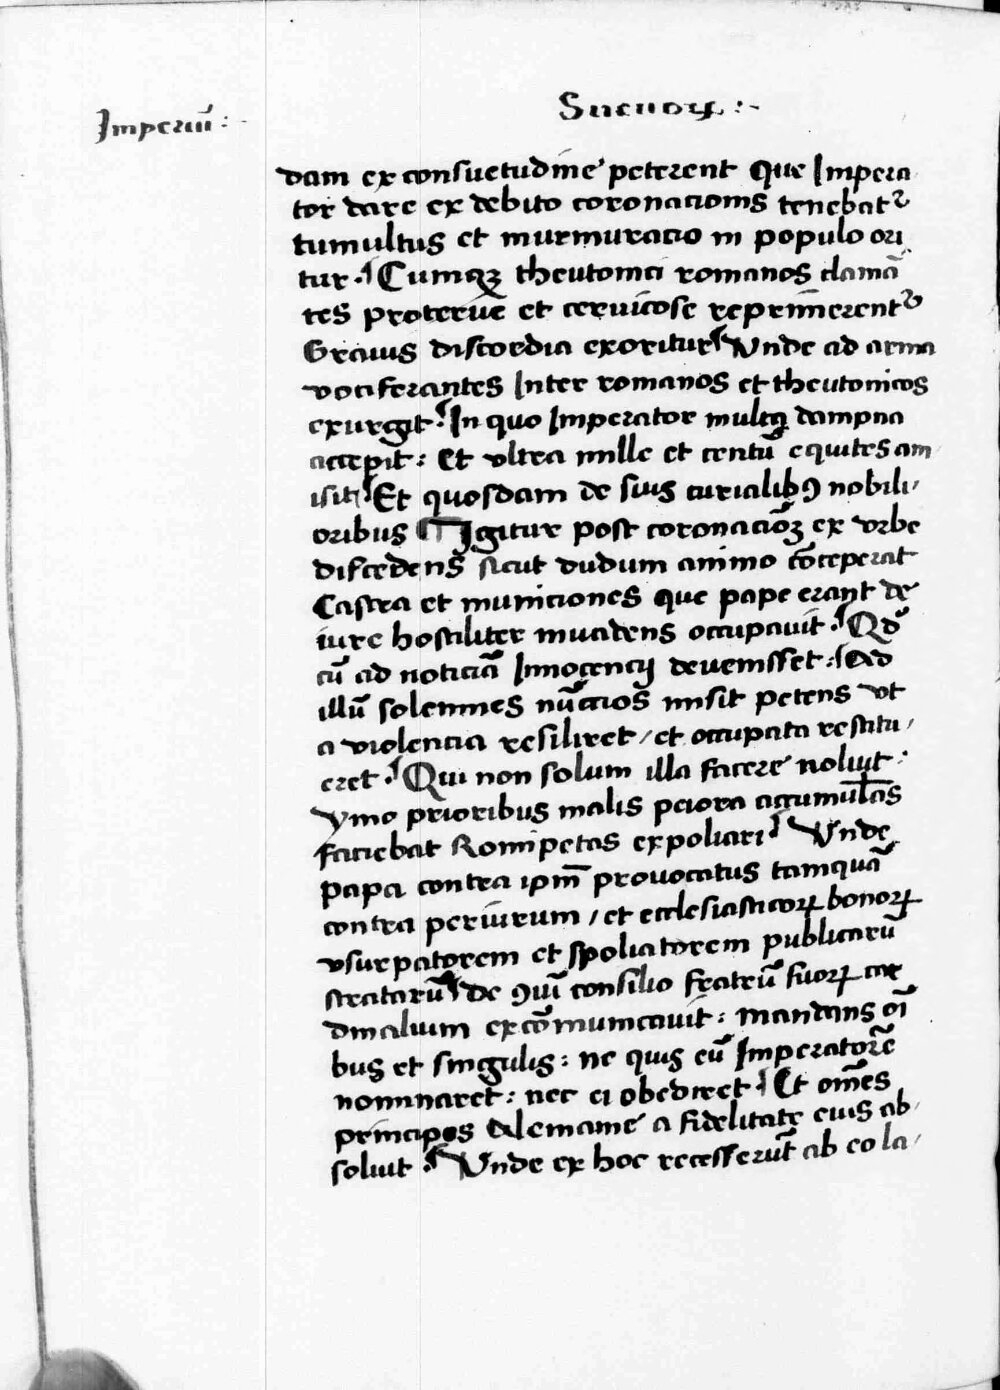 Imperiū :-
Sueuoꝝ :-
dam ex consuetudine peterent Que Impera
tor dare ex debito coronacionis tenebat᷑
tumultus et murmuracio in populo ori
tur . Cumqꝫ theutonici romanos clamā
tes proterue et ceruicose reprimerent᷑
Grauis discordia exoritur Vnde ad arma
vociferantes Inter romanos et theutonicos
exurgit . In quo Imperator multa dampna
accepit : Et vltra mille et centū equites am
isit Et quosdam de suis curialibꝫ nobili-
oribus Igitur post coronacioꝫ ex vrbe
discedens sicut dudum animo cōceperat
Castra et municiones que pape erant de
iure hostiliter inuadens occupauit . Qđ
cū ad noticiā Innocencij deuenisset : Ad
illū solemnes nūccios misit petens vt
a violencia resiliret / et occupata restitu /
eret . Qui non solum illa facere noluit :
ymo prioribus malis peiora accumul̄as
faciebat Romipetas expoliari Vnde
papa contra ip̄m prouocatus tamquā
contra periurum / et ecclesiasticoꝝ bonoꝝ
vsurpatorem et spoliatorem publicarū
stratarū de ꝯuī consilio fratrū suoꝝ car
dinalium excōmunicauit : mandans oī
bus et singulis : ne quis eū Imperatorē
nominaret : nec ei obediret . Et om̄es
principes Alemanie a fidelitate eius ab /
soluit . Vnde ex hoc recesserūt ab eo la /